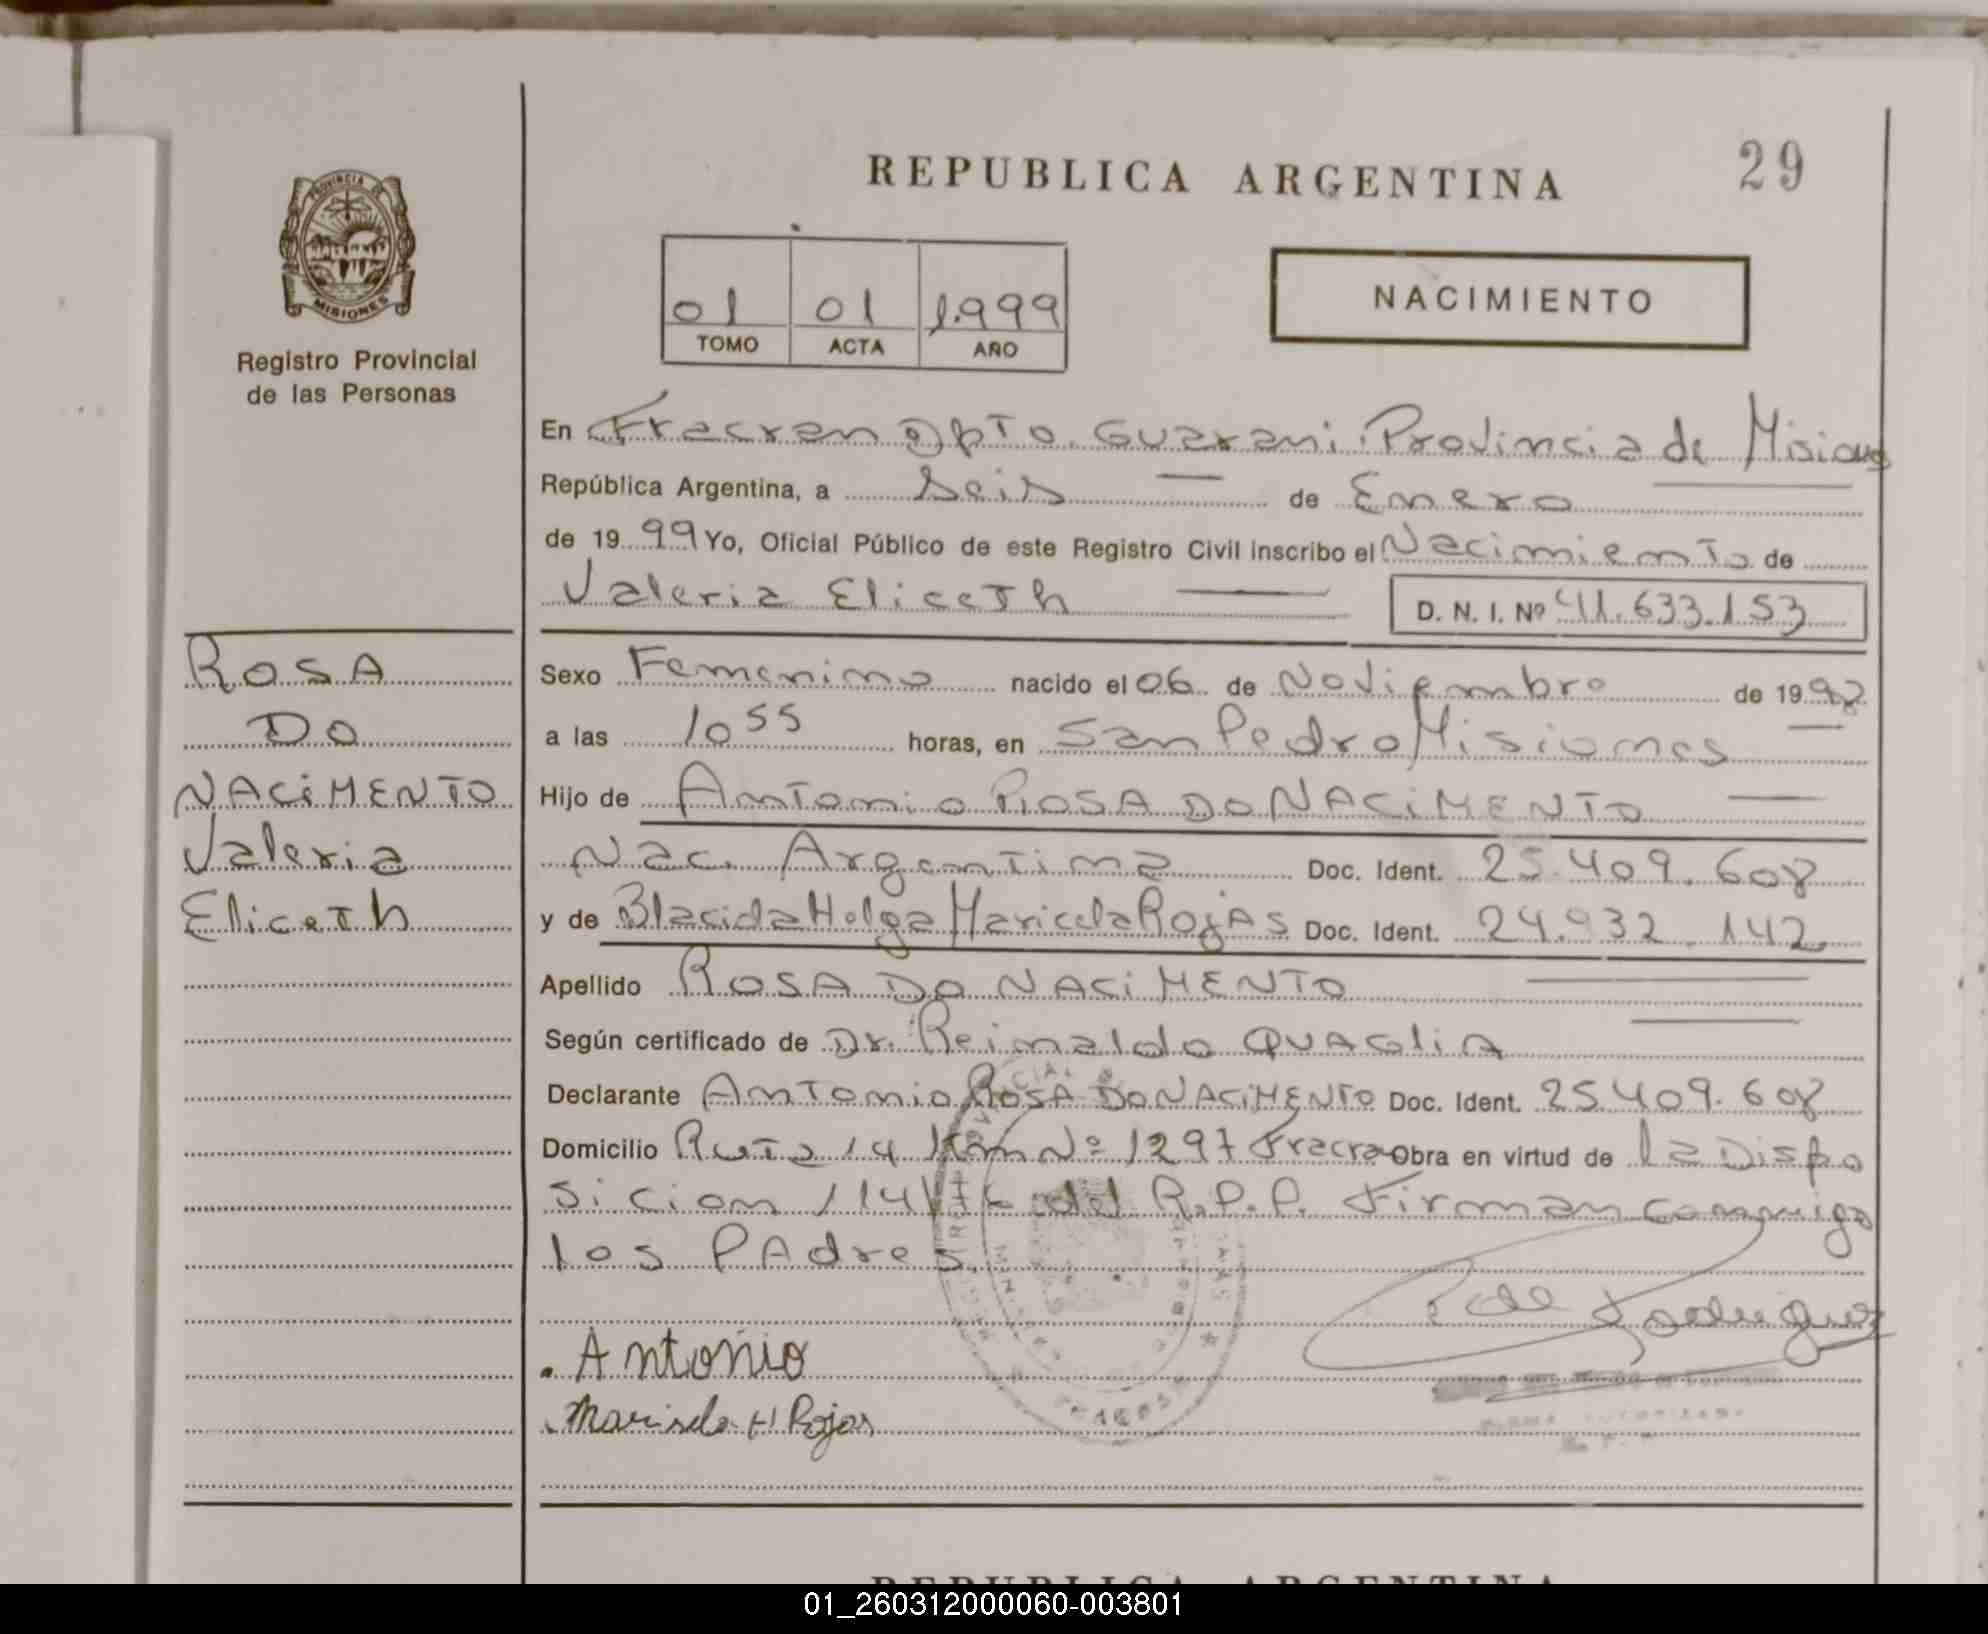 29
REPUBLICA ARGENTINA
PROVINCIA DE
MISIONES
Registro Provincial
de las Personas
01 01 1.999
TOMO ACTA AÑO
NACIMIENTO
En Fracran Dpto. Guarani. Provincia de Misiones
República Argentina, a Seis de Enero
de 1999 Yo, Oficial Público de este Registro Civil inscribo el Nacimiento de
Valeria Eliceth
D. N. I. Nº 41.633.153
ROSA
DO
NACIMENTO
Valeria
Eliceth
Sexo Femenino nacido el 06 de Noviembre de 1998
a las 10 55 horas, en San Pedro Misiones
Hijo de Antonio ROSA DO NACIMENTO
Nac. Argentina Doc. Ident. 25.409.608
y de Blacida Helga Maricela Rojas Doc. Ident. 24.932.142
Apellido ROSA DO NACIMENTO
Según certificado de Dr. Reinaldo QUAGLIA
Declarante Antonio ROSA DO NACIMENTO Doc. Ident. 25.409.608
Domicilio Ruta 14 Km Nº 1297 Fracran Obra en virtud de la Dispo
sicion 114/76 del R.P.P. Firman conmigo
los PAdres.
Rodriguez
. Antonio
. Marisela H Rojas
REPUBLICA ARGENTINA
01_260312000060-003801